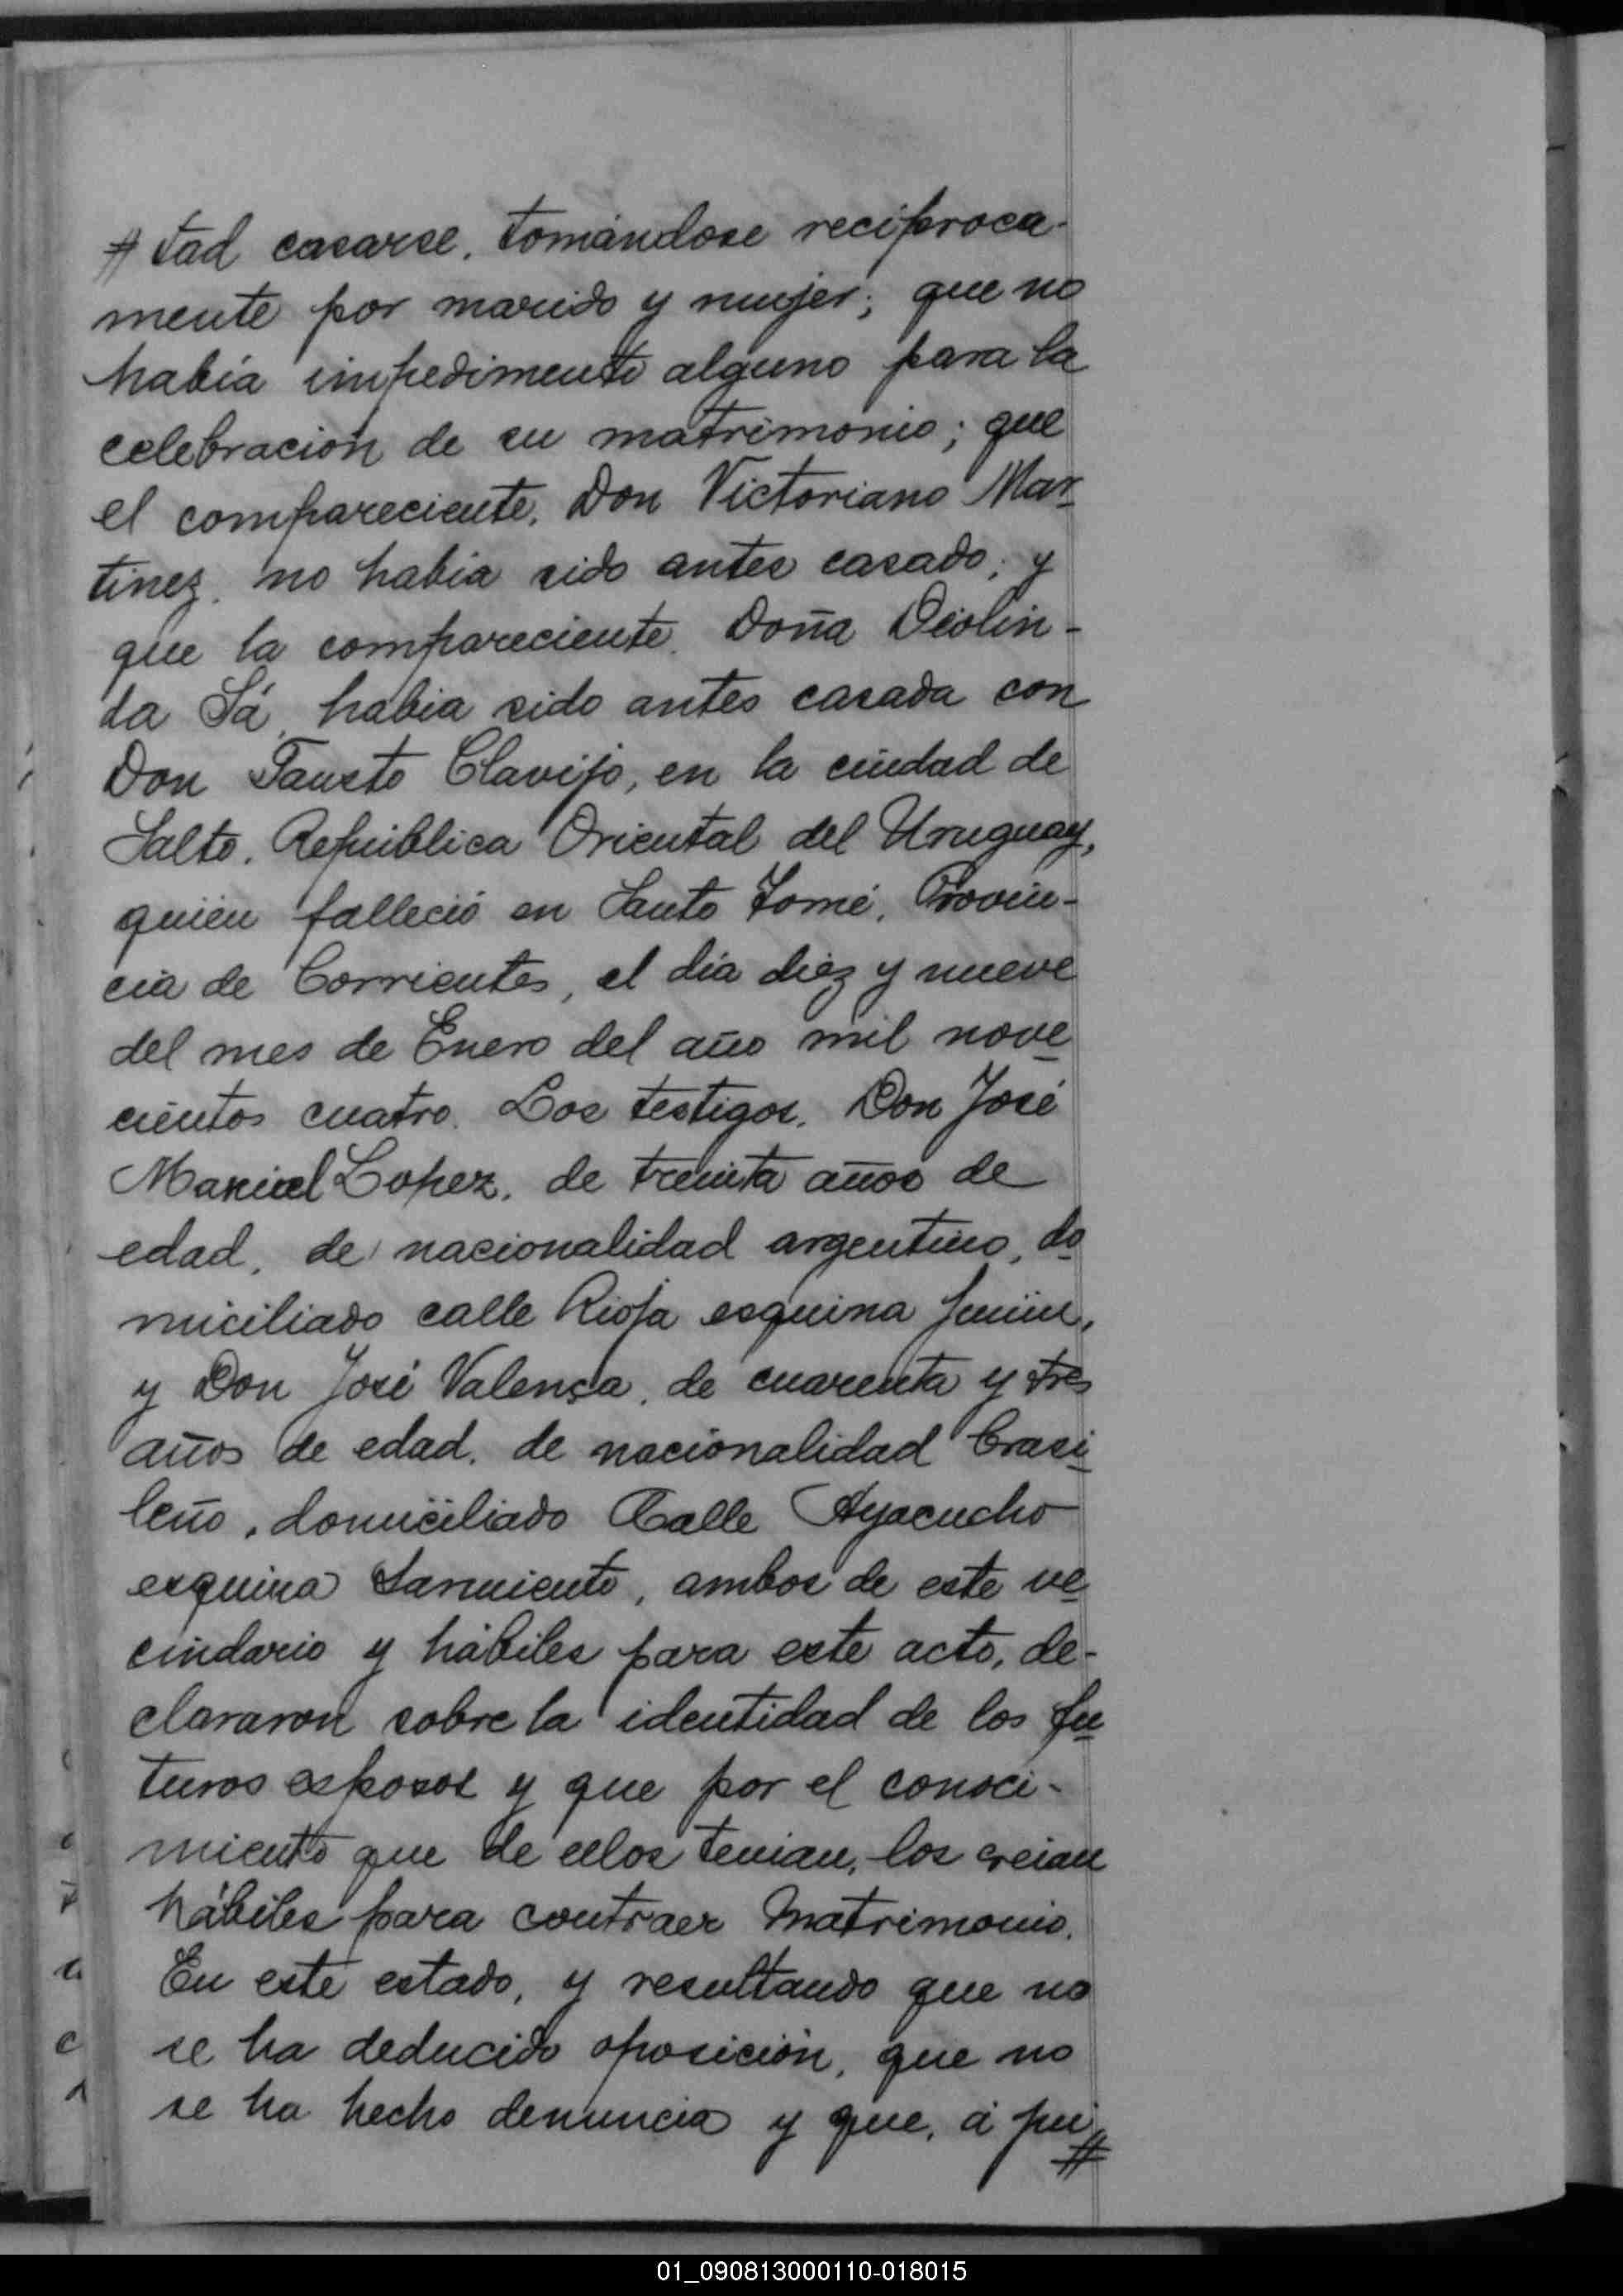 # tad casarse, tomándose recíproca-
mente por marido y mujer; que no
había impedimento alguno para la
celebración de su matrimonio; que
el compareciente, Don Victoriano Mar-
tinez, no había sido antes casado; y
que la compareciente, Doña Diolin-
da Sá, habia sido antes casada con
Don Fausto Clavijo, en la ciudad de
Salto, República Oriental del Uruguay,
quién falleció en Santo Tomé, Provin-
cia de Corrientes, el dia diez y nueve
del mes de Enero del año mil nove
cientos cuatro. Los testigos, Don José
Manuel Lopez, de treinta años de
edad, de nacionalidad argentino, do
miciliado calle Rioja esquina Junín,
y Don José Valensa, de cuarenta y tres
años de edad, de nacionalidad brasi
leño, domiciliado Calle Ayacucho
esquina Sarmiento, ambos de este ve
cindario y hábiles para este acto, de-
clararon sobre la identidad de los fu
turos esposos y que por el conoci-
miento que de ellos tenian, los creian
hábiles para contraer Matrimonio.
En este estado, y resultando que no
se ha deducido oposición, que no
se ha hecho denuncia y que, á pu
#
01_090813000110-018015